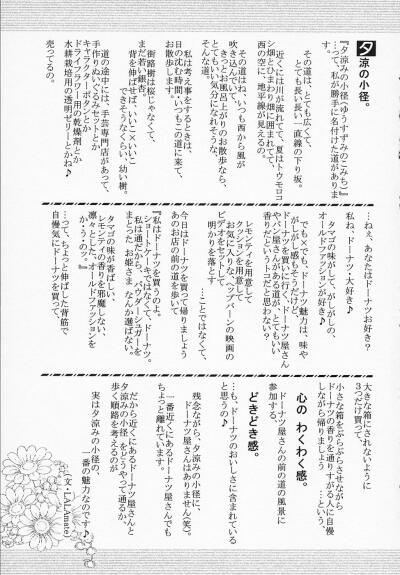 夕涼の小径。
『夕涼みの小径(ゆうすずみのこみち)』
…って、私が勝手に名付けた道があります。
その道は、とても広くて、
とても長い長い一直線の下り坂。
近くには川が流れてて、夏はトウモロコシ畑とひまわり畑に囲まれてて、
西の空に、地平線が見えるの。
その道はね、いつも西から風が
吹き込んでいて、
きっとお風呂上がりのお散歩なら、
とてもいい気分になれそうな、
そんな道。
私は考え事をするときは、
日の沈む時間、いつもこの道に来て、
お散歩します。
街路樹は桜じゃなくて、
まだ若い銀杏。
背を伸ばせば、いいこ×いいこ
できそうなくらい、幼い樹。
道の途中には、手芸専門店があって、
手作りぬいぐるみセットとか
キャラクターボタンとか
ドライフラワー用の乾燥剤とか
水耕栽培用の透明ゼリーとかね♪
売ってるの。
…ねぇ、あなたはドーナツお好き?
私ね、ドーナツ・大好き♪
タマゴの味がして、がしがしの、
オールドファッションが好き♪
でも×でも、ドーナツ魅力は、味や
がしがし感もそうだけど、
ドーナツを買いに行く、ドーナツ屋さん
やパン屋さんがある道が、とてもいい
香りだというトコだと思わない?
レモンティを用意して
クッションを用意して
お気に入りな、ヘップバーンの映画の
ビデオをセットして
明かりを落として、
…ことではなくて、
今日はドーナツを買って帰りましょう
あのお店の前の道を歩いて
『私はドーナツを買うのよ。
ショートケーキではなくて、ドーナツ。
私は通だから、パウダーシュガーを
まとったお姫さまなんか選ばない。
タマゴの味が香ばしい、
レモンティの香りを邪魔しない、
凛々とした、オールドファッションを
か・う・のッ。』
…って、ちょっと伸ばした背筋で
自慢気にドーナツを買って、
大きな箱にされないように
3つだけ買って、
小さな箱をぶらぶらさせながら
ドーナツの香りを通りすがる人に自慢
しながら帰りましょう …という、
心の わくわく感。
ドーナツ屋さんの前の道の風景に
参加する、
どきどき感。
…も、ドーナツのおいしさに含まれている
と思うの♪
残念ながら、夕涼みの小径に、
ドーナツ屋さんはありません(笑)。
一番近くにあるドーナツ屋さんでも
ちょっと離れています。
だから近くにあるドーナツ屋さんと
夕涼みの小径をどうやって通るか、
歩く順路を考えるのが
実は夕涼みの小径の、
一番の魅力なのです♪
(文・LALAmate)